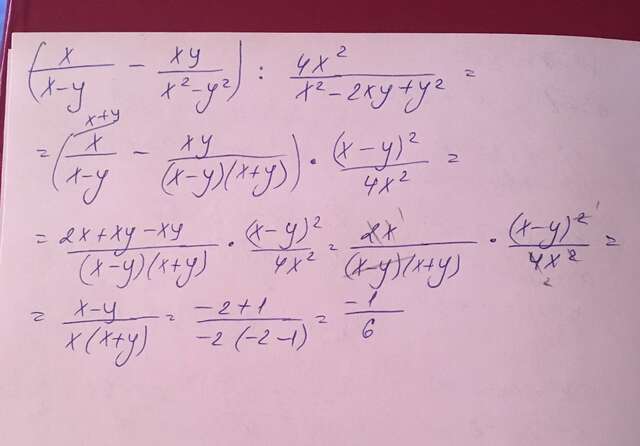 (x/(x-y) - xy/(x²-y²)) : 4x²/(x²-2xy+y²) =
= (x^{x+y}/(x-y) - xy/((x-y)(x+y))) · (x-y)²/4x² =
= (2x+xy-xy)/((x-y)(x+y)) · (x-y)²/4x² = 2x¹/((x-y)(x+y)) · (x-y)²¹/4₂x² =
= (x-y)/(x(x+y)) = (-2+1)/(-2(-2-1)) = -1/6